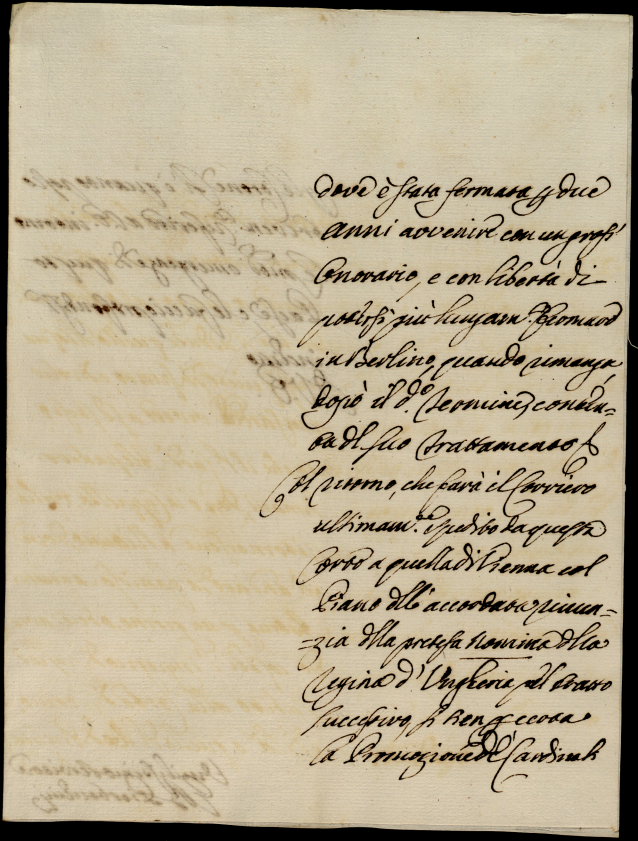 dove è stata fermata p due
Anni avvenire con un gross
Onorario, e con libertà di
potersi più lungam.te fermare
in Berlino, quando rimanga,
dopò il d.o Termine, conten=
ta del suo trattamento
Col ritorno, che farà il Corriero
ultimam.te spedito da questa
Corte a quella di Vienna col
Piano dell'accordata rinun=
=zia della pretesa Nomina della
Regina d'Ungheria pel tratto
successivo, si tien p certa
la Promozione de' Cardinali